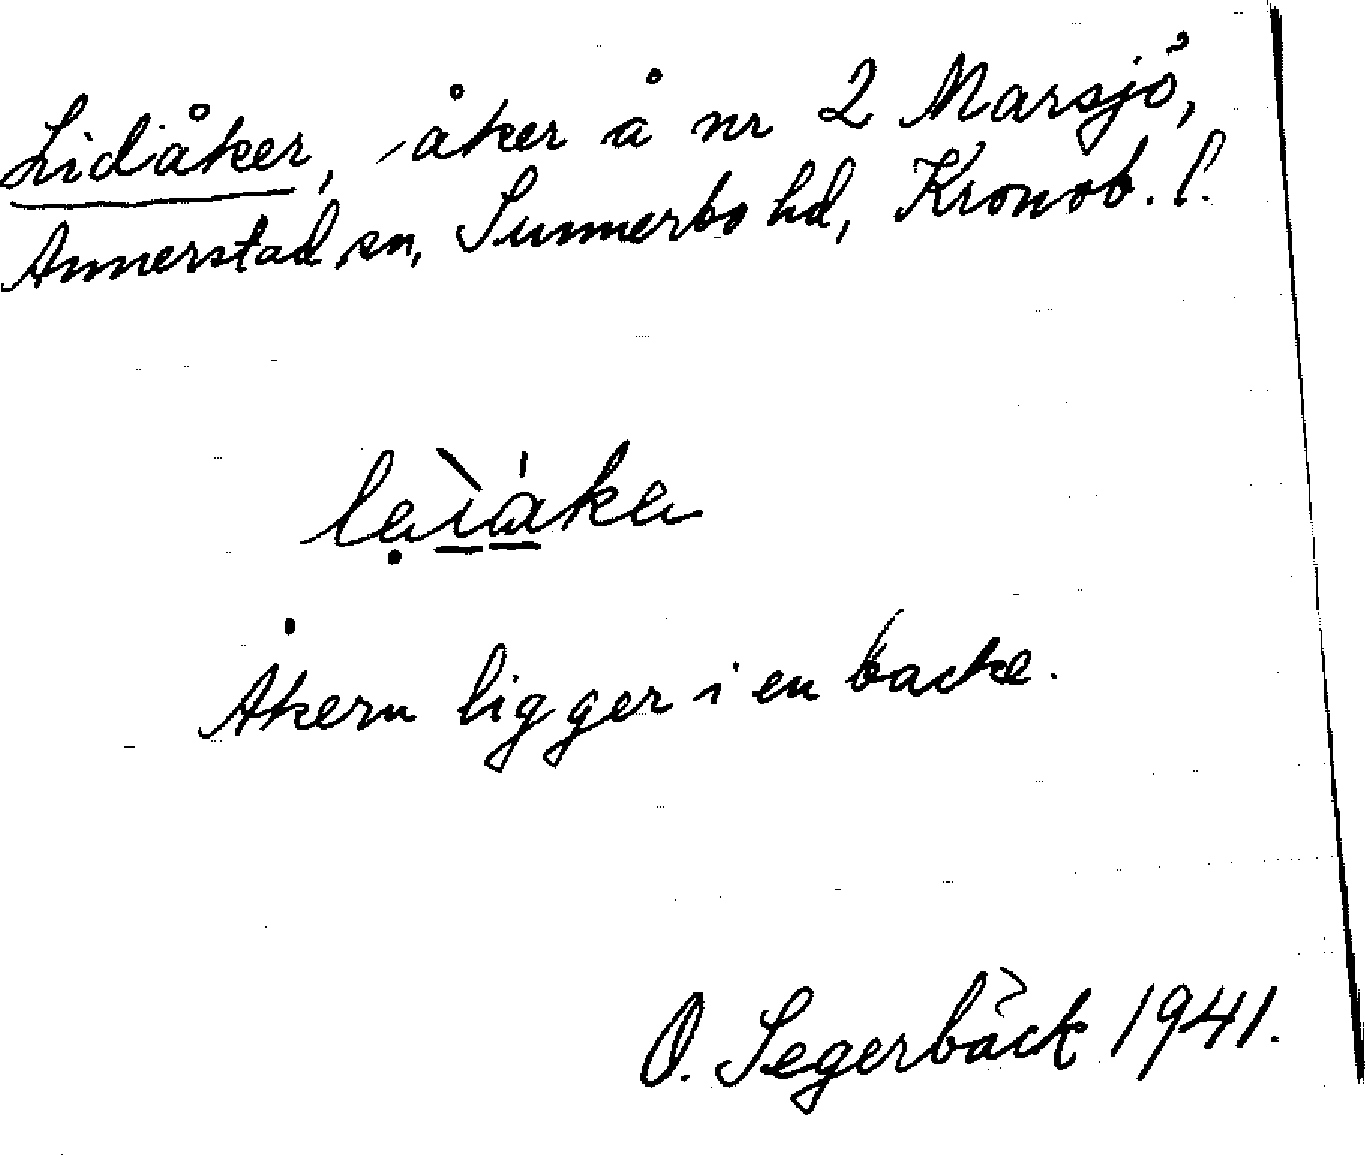 Lidåker, åker å nr 2 Marsjö,
Annerstad sn, Sunnerbo hd, Kronob. l.
Åkern ligger i en backe.
O. Segerbäck 1941.